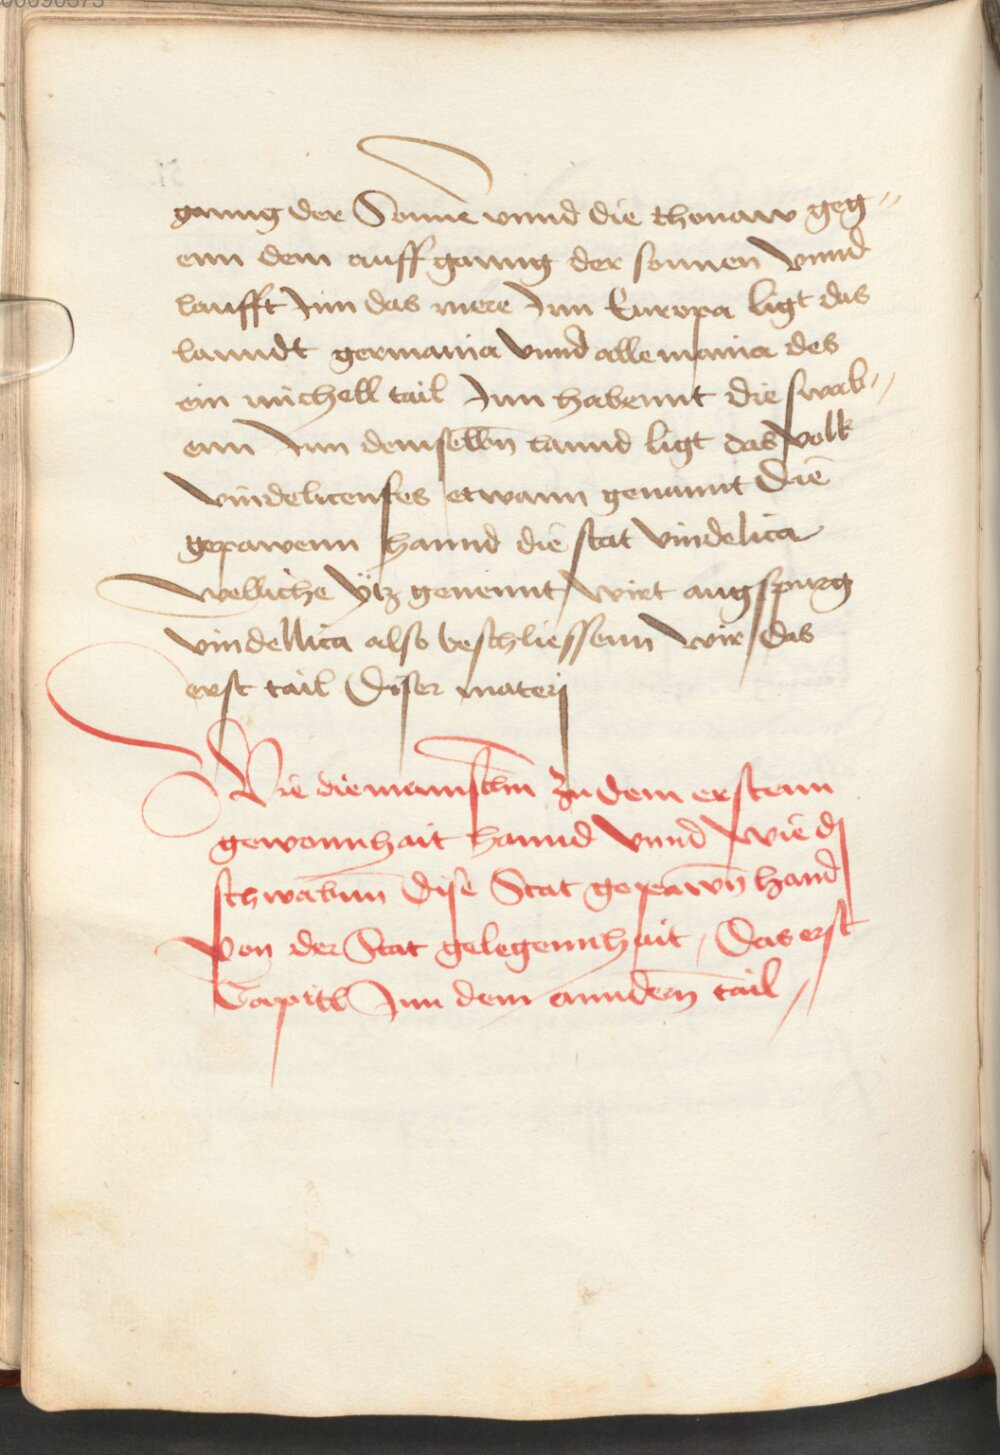 ganng der Sonne vnnd die thonaw geg〃
enn dem auff ganng der sonnen vnnd
laufft Jnn das mere Jnn Europa ligt das
lanndt germania vnnd allemania des
ein michell tail Jnn habennt die swab〃
enn Jnn demselbn̄ lannd ligt das volk
vindelicenses etwann genannt Die
gepawenn hannd die stat vindelica
welliche ytz genennt wirt augspurg
vindellica also beschliessenn wir das
erst tail Diser materj
Wie die mannschn̄ zu dem erstenn
gewonnhait hannd vnnd wie dj
schwabnn̄ Dise Stat gepawn̄ hand
von der Stat gelegennhait / Das erst
Capitl Jnn dem anndern̄ tail /